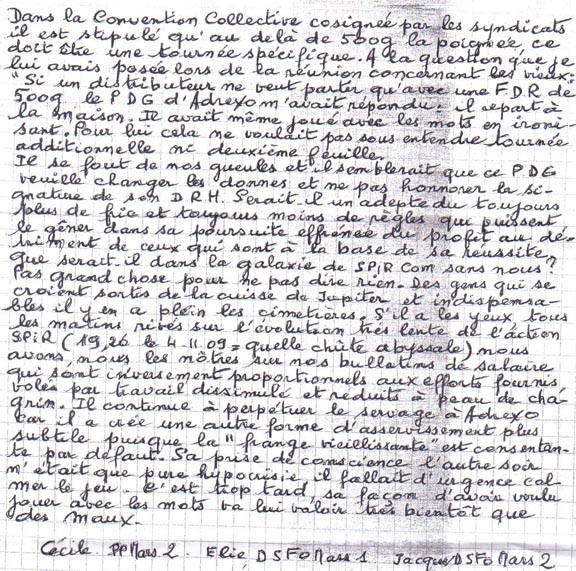 Dans la Convention Collective cosignée par les syndicats
il est stipulé qu'au delà de 500g la poignée, ce
doit être une tournée spécifique. A la question que je
lui avais posée lors de la réunion concernant les vieux:
"Si un distributeur ne veut partir qu'avec une F.D.R de
500g, le PDG d'Adrexo m'avait répondu: il repart à
la maison. Il avait même joué avec les mots en ironi-
sant. Pour lui cela ne voulait pas sous entendre tournée
additionnelle ni deuxième feuille.
Il se fout de nos gueules et il semblerait que ce PDG
veuille changer les donnes et ne pas honnorer la si-
gnature de son D.R.H. Serait-il un adepte du toujours
plus de fric et toujours moins de règles qui puissent
le gêner dans sa poursuite effrénée du profit au dé-
triment de ceux qui sont à la base de sa réussite?
Que serait-il dans la galaxie de SPIR Com sans nous?
Pas grand chose pour ne pas dire rien. Des gens qui se
croient sortis de la cuisse de Jupiter et indispensa-
bles il y en a plein les cimetières. S'il a les yeux tous
les matins rivés sur l'évolution très lente de l'action
SPIR (19,26 le 4-11-09 = quelle chûte abyssale) nous
avons, nous les nôtres sur nos bulletins de salaire
qui sont inversement proportionnels aux efforts fournis,
volés par travail dissimulé et réduits à peau de cha-
grin. Il continue à perpétuer le servage à Adrexo
car il a crée une autre forme d'asservissement plus
subtile puisque la "frange vieillissante" est consentan-
te par défaut. Sa prise de conscience l'autre soir
n'était que pure hypocrisie il fallait d'urgence cal-
mer le jeu. C'est trop tard, sa façon d'avoir voulu
jouer avec les mots va lui valoir très bientôt que
des maux.
Cécile PP Mars 2. Elie DSFO Mars 1 Jacques DSFO Mars 2